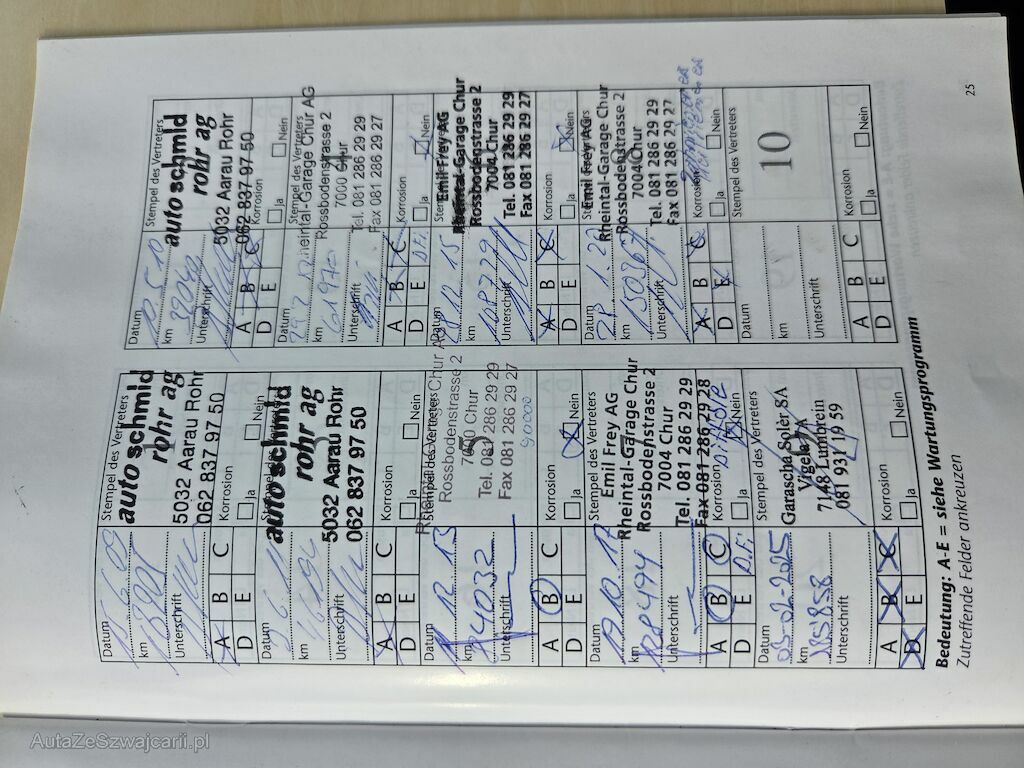 Datum
Stempel des Vertreters
auto schmid
rohr ag
5032 Aarau Rohr
062 837 97 50
km
Unterschrift
A B C
D E
Korrosion
Ja Nein
Datum
Stempel des Vertreters
auto schmid
rohr ag
5032 Aarau Rohr
062 837 97 50
km 39040
Unterschrift
A B C
D E
Korrosion
Ja Nein
Datum
auto schmid
rohr ag
5032 Aarau Rohr
062 837 97 50
km
Unterschrift
A B C
D E
Korrosion
Ja Nein
Datum
Stempel des Vertreters
Rheintal-Garage Chur AG
Rossbodenstrasse 2
7000 Chur
Tel. 081 286 29 29
Fax 081 286 29 27
km 61970
Unterschrift
A B C
D E D.Fi.
Korrosion
Ja Nein
Datum
Stempel des Vertreters
Rheintal-Garage Chur AG
Rossbodenstrasse 2
7000 Chur
Tel. 081 286 29 29
Fax 081 286 29 27
90000
km 84032
Unterschrift
A B C
D E
Korrosion
Ja Nein
Datum
Emil Frey AG
Rheintal-Garage Chur
Rossbodenstrasse 2
7004 Chur
Tel. 081 286 29 29
Fax 081 286 29 27
km
Unterschrift
A B C
D E
Korrosion
Ja Nein
Datum 17.10.17
Emil Frey AG
Rheintal-Garage Chur
Rossbodenstrasse 2
7004 Chur
Tel. 081 286 29 29
Fax 081 286 29 28
km 128494
Unterschrift
A B C
D E D.Fi.
Korrosion
Ja Nein
Datum
Emil Frey AG
Rheintal-Garage Chur
Rossbodenstrasse 2
7004 Chur
Tel. 081 286 29 29
Fax 081 286 29 27
km 150367
Unterschrift
A B C
D E
Korrosion
Ja Nein
Datum 03-02-2025
Stempel des Vertreters
Garascha Soler SA
7148 Lumbrein
081 931 19 59
km 185858
Unterschrift
A B C
D E
Korrosion
Ja Nein
Datum
Stempel des Vertreters
10
km
Unterschrift
A B C
D E
Korrosion
Ja Nein
Bedeutung: A-E = siehe Wartungsprogramm
Zutreffende Felder ankreuzen
25
AutaZeSzwajcarii.pl